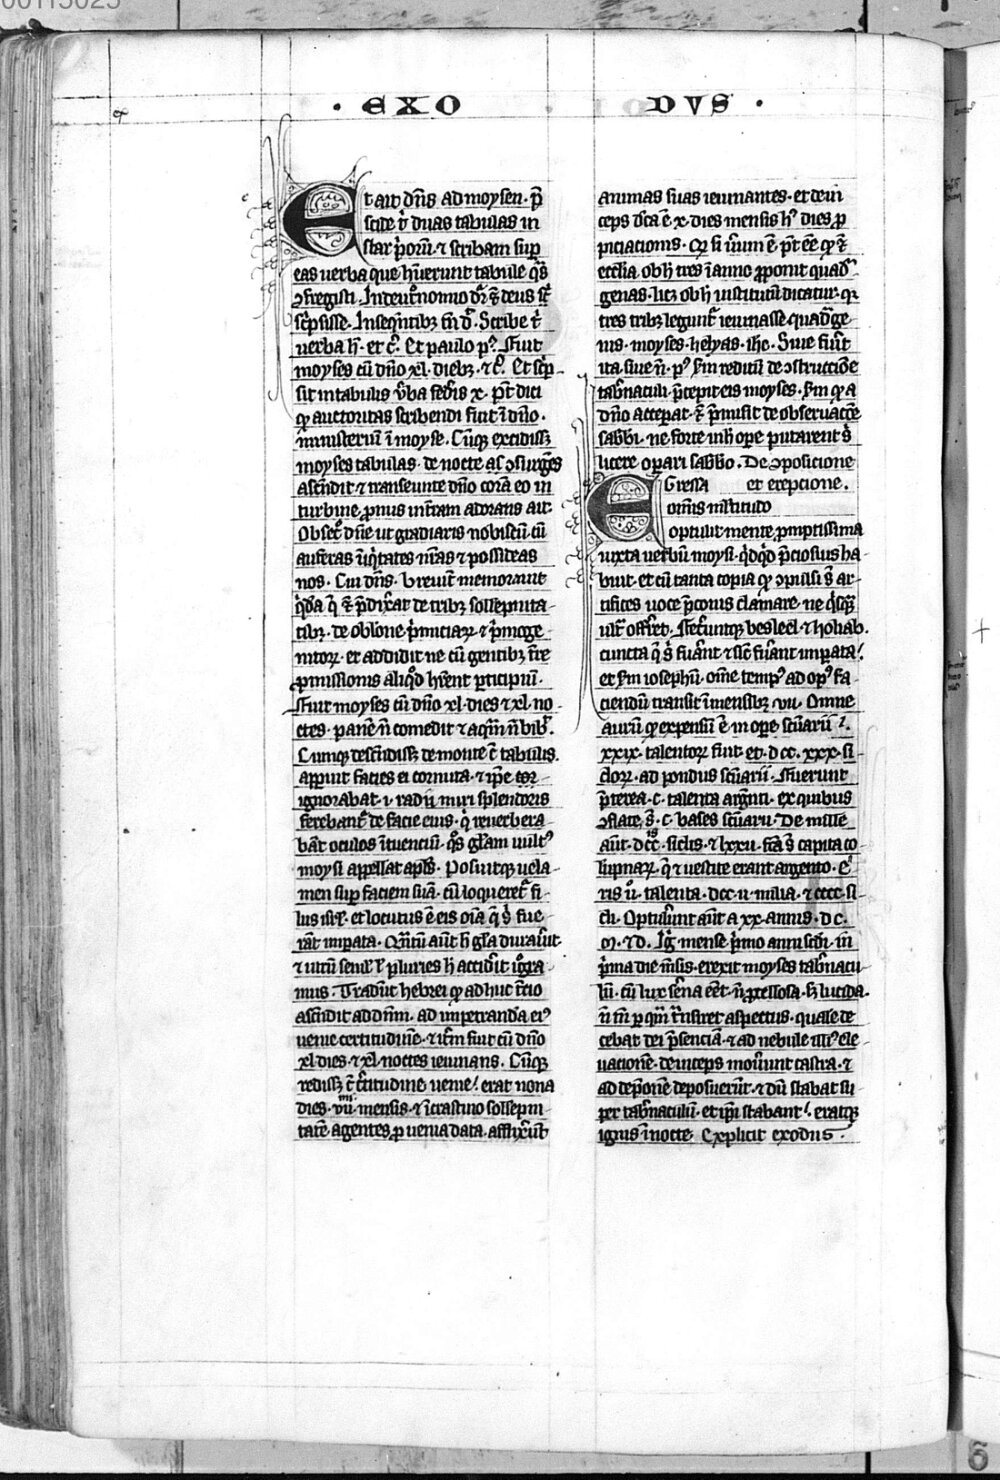 · EXO DVS ·
Et ait dñs ad moysen. p̃
scide t̾ duas tabulas in
star p̾orũ. ⁊ scribam sup̲
eas uerba que hũerunt tabule q̃s
ɔfregisti. In deut̾onomio dr̃
sc̾psisse. In seq̃ntibꝫ tñ d̾r. Scribe t̾
uerba h̾. et c̾. Et paulo p̾ꝰ. Fuit
moyses cũ dño xl. diebꝫ. ⁊ c̾. Et sc̾p
sit in tabulis ũba fed̾is x. p̃t dici
ꝙ auctoritas scribendi fuit ĩ dño.
ministeriũ ĩ moyse. Cũqꝫ excidissꝫ
moyses tabulas. de nocte ɔsurgẽs
ascẽdit ⁊ transeunte dño corã eo in
turbine, pronus in t̾ram adorans ait.
Obsec̾ dñe ut gradiaris nobiscũ. cũ
auferas iniq̾tates nr̃as ⁊ possideas
nos. Cui dñs. breuit̾ memorauit
q̾dã q̃ p̃dix̾at de tribꝫ sollempnita
tibꝫ. de oblõne p̾miciaꝝ ⁊ p̾moge
nitoꝝ. et addidit ne cũ gentibꝫ t̾re
ꝓmissionis aliq̾d hẽrent ꝑticipiũ.
Fuit moyses cũ dño xl. dies ⁊ xl. no
ctes. panẽ ñ comedit ⁊ aq̃m ñ bib̾.
Cumqꝫ descẽdissꝫ de monte c̃ tabulis.
apparuit facies ei cornuta. ⁊ ip̃e
ignorabat. i. radii miri splendoris
ferebant̾ de facie eius. q̾ reuerbera
bãt oculos ĩtuenciũ. q̃s gl̃am uult̾
moysi appellat apl̃s. Posuitqꝫ uela
men sup̲ faciem suã. cũ loqueret̾ fi
liis isrl̃. et locutus ẽ eis oĩa q̃ s̾ fue
rãt imp̲ata. Q̃ntũ aũt h̾ gl̃a durau̾it.
⁊ utrũ semel l̾ pluries h̾ accid̾it ĩgra
mus. Tradũt hebrei ꝙ adhuc t̾cio
ascẽdit ad dñm. ad imp̲etrandã eiꝰ
uenie certitudinẽ. ⁊ it̾m fuit cũ dño
xl. dies. ⁊ xl. noctes ieiunans. Cũqꝫ
redissꝫ c̃ c̾titudine uenie. erat nona
dies. vii. mensis. ⁊ ĩ crastino sollempni
tatẽ agentes ꝓ uenia data. afflix̾unt
animas suas ieiunantes. et dein
ceps dicta ẽ x. dies mensis hꝰ dies ꝓ
piciationis.
eccl̃ia obh̾ tres ĩ anno ꝓponit quad̾
genas. licꝫ obh̾ institutũ dicatur. qr
tres tribꝫ legunt̾ ieiunasse quad̾ge
nis. moyses. helyas. ihc. Siue fu̾it
ita siue ñ. pꝰ hũ reditũ de ɔstructiõe
tab̾naculi. p̃cepit eis moyses. hm̃ q̃ a
dño acceperat. ⁊ p̃misit de obseruatiõe
sabb̾i. ne forte in h̾ oꝑe putarent s̾
licere oꝑari sabb̾o. De ɔpositione
et erectione.
Egressa
omĩs multitudo
optulit mente ꝓmptissima
iuxta uerbũ moysi. q̾dq̾d p̾ciosius ha
buit. et cũ tanta copia ꝙ ɔpulsi s̃t ar
tifices uoce p̃conis clamare. ne q̾sq̃
ult̾a offerret. Fec̾untqꝫ beseleel ⁊ holiab.
cuncta q̃ s̾ fu̾ant ⁊ sic̾ fu̾ant imp̲ata.
et hm̃ iosephũ. om̃e tempꝰ ad opꝰ fa
ciendũ transiit ĩ mensibꝫ vii. Omne
aurũ ꝙ expensũ ẽ in oꝑe sc̃uarii.
xxix. talentoꝝ fuit. et. dcc. xxx. si
cloꝝ. ad pondus sc̃uarii. Fuerunt
p̃terea. c. talenta arg̾nti. ex quibus
ɔflate s̃t. c. bases sc̃uarii. De mille
aũt. dcc. siclis. ⁊ lxxv. fc̃a s̃t capita co
lũpnaꝝ. q̃ ⁊ uestite erant argento. E
ris u̾. talenta. dcc. ii. milia. ⁊ cccc. si
cli. Optul̾unt aũt a xx. annis. dc.
m. ⁊ d. Ig̾ mense p̾mo anni sc̾di. in
p̾ma die mẽsis. erexit moyses tab̾nacu
lũ. cũ lux serena eẽt. ñ ꝓcellosa. s̾ lucida.
ñ tñ ꝑ q̃m t̾nsiret aspectus. quasi de
cebat dei p̾senciã. ⁊ ad nebule illiꝰ ele
uationẽ. deinceps mou̾unt castra. ⁊
ad dep̾onẽ deposuerũt. ⁊ dũ stabat su
per tab̾naculũ. et ip̃i stabant. eratqꝫ
ignis ĩ nocte. Explicit exodus.